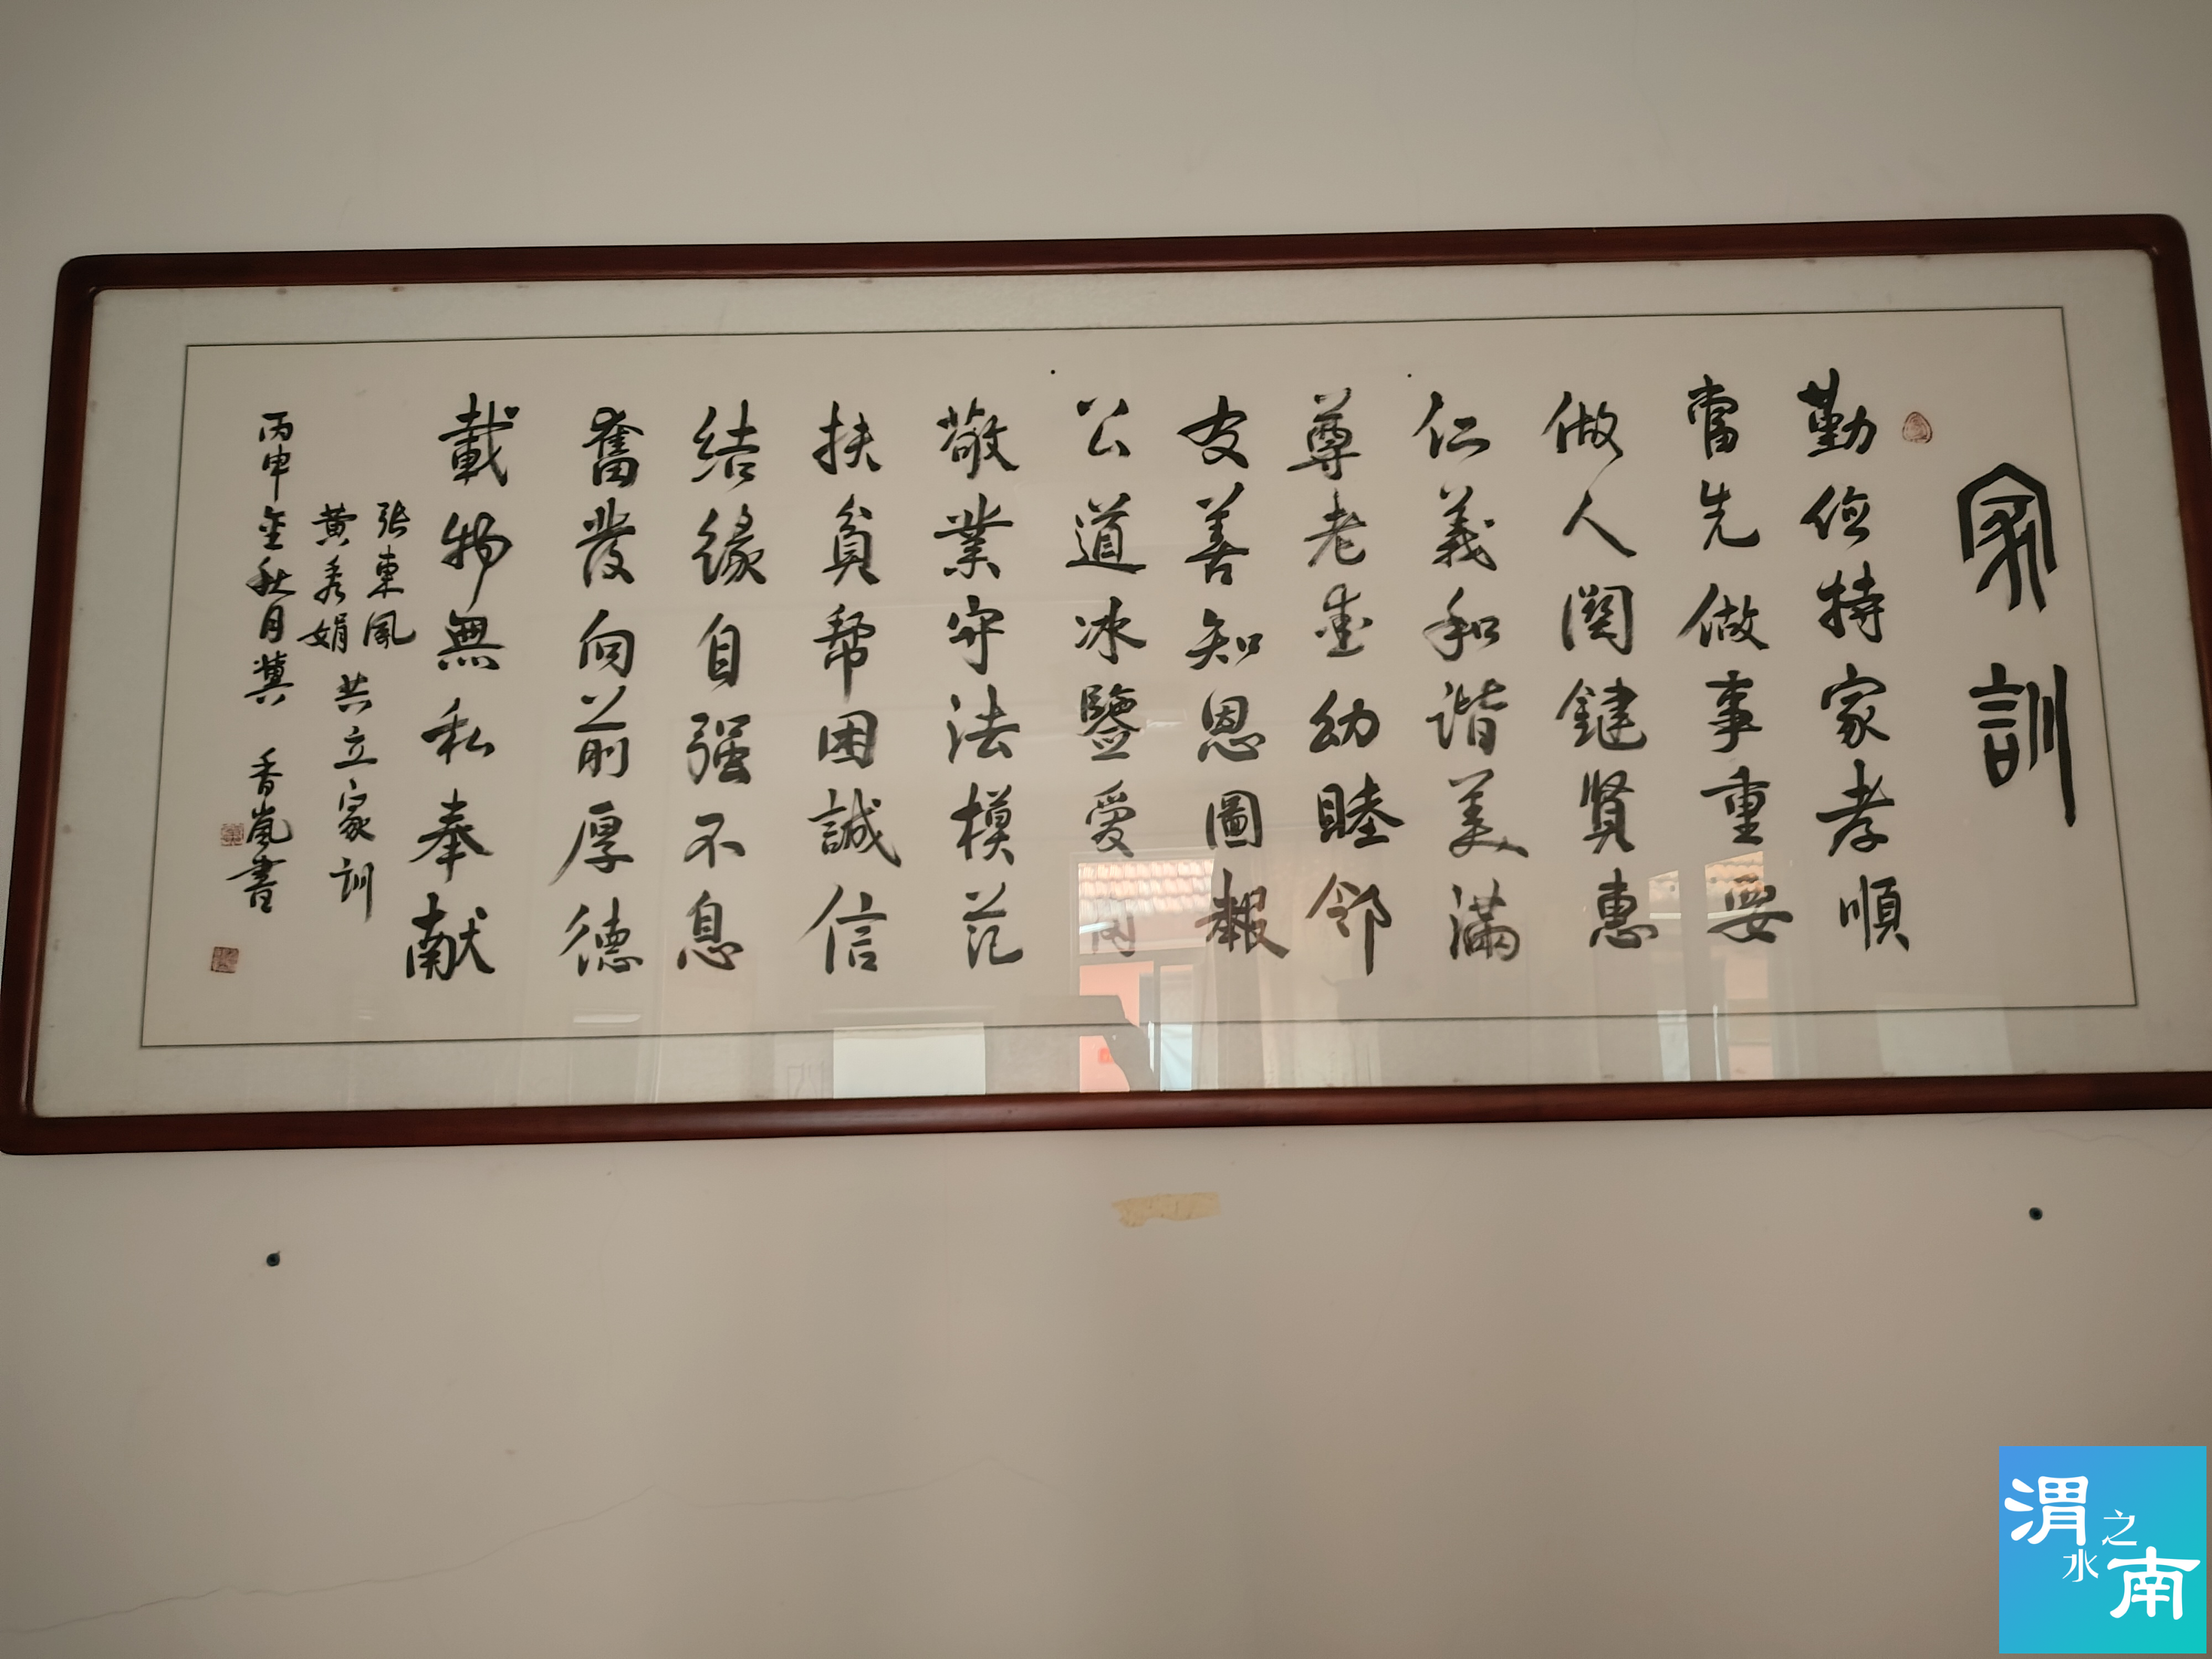 家訓
勤儉持家孝順
當先做事重要
做人関鍵賢惠
仁義和谐美滿
尊老愛幼睦邻
友善知恩圖報
公道冰鑒愛
敬業守法模范
扶貧幫困誠信
结緣自强不息
奮發向前厚德
載物無私奉献
张東風
黄秀娟
共立家训
丙申金秋月冀 香嵐書
渭水之南